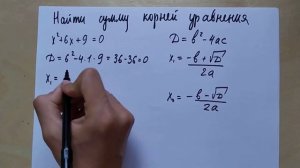 Найти сумму корней уравнения
x²+6x+9=0
D=6²-4·1·9=36-36=0
x₁=
D=b²-4ac
x₁=(-b+√D)/2a
x₂=(-b-√D)/2a